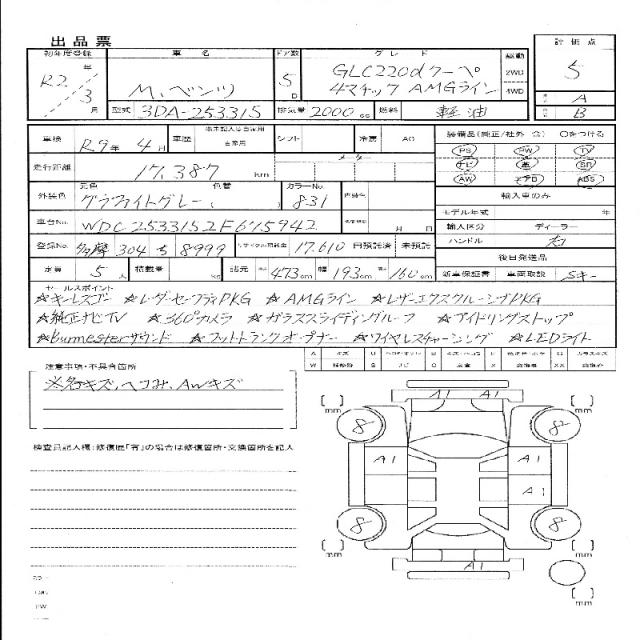 出品票
初年度登録 車名 ドア数 グレード 駆動 評価点
R2年 3月 M.ベンツ 5D GLC220dクーペ 2WD 5
4マチック AMGライン 4WD A
型式 3DA-253315 排気量 2000cc 燃料 軽油 B
車検 R9年 4月 車歴 自家用 シフト 冷房 AC 装備品(純正/社外 含) ○をつける
走行距離 17,387 km メーター PS PW TV
ナビ 革 SR
AW エアB ABS
外装色 元色 グラファイトグレー 色替 カラーNo. 831 輸入車のみ
モデル年式 年
車台No. WDC2533152F675942 月 日 輸入区分 ディーラー
登録No. 多摩 304 ち 8999 リサイクル預託金 17,610 円預託済 未預託 ハンドル 右
後日発送品
定員 5人 積載量 kg 諸元 長 473cm 幅 193cm 高 160cm 新車保証書 車両取説 Sキー
セールスポイント
☆キーレスゴー ☆レーダーセーフティPKG ☆AMGライン ☆レザーエクスクルーシブPKG
☆純正ナビTV ☆360°カメラ ☆ガラススライディングルーフ ☆アイドリングストップ
☆Burmesterサウンド ☆フットトランクオープナー ☆ワイヤレスチャージング ☆LEDライト
注意事項・不具合箇所
※各キズ、ヘコみ、AWキズ
検査員記入欄:修復歴「有」の場合は修復箇所・交換箇所を記入
A1 A1
mm mm
8 8
A1 A1
A1
8 8
A1
mm mm
mm